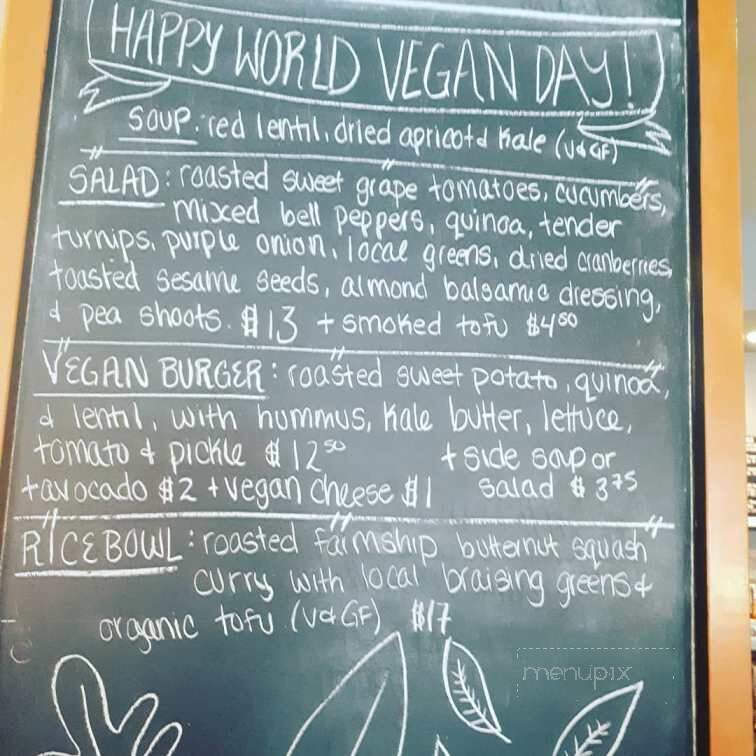 HAPPY WORLD VEGAN DAY!
SOUP: red lentil, dried apricot & kale (V&GF)
SALAD: roasted sweet grape tomatoes, cucumbers,
mixed bell peppers, quinoa, tender
turnips, purple onion, local greens, dried cranberries,
toasted sesame seeds, almond balsamic dressing,
& pea shoots. $13 + smoked tofu $4⁵⁰
VEGAN BURGER: roasted sweet potato, quinoa,
& lentil, with hummus, kale butter, lettuce,
tomato & pickle $12⁵⁰ + side soup or
+avocado $2 +vegan cheese $1 salad $3⁷⁵
RICE BOWL: roasted farmship butternut squash
curry with local braising greens &
organic tofu (V&GF) $17
menupix